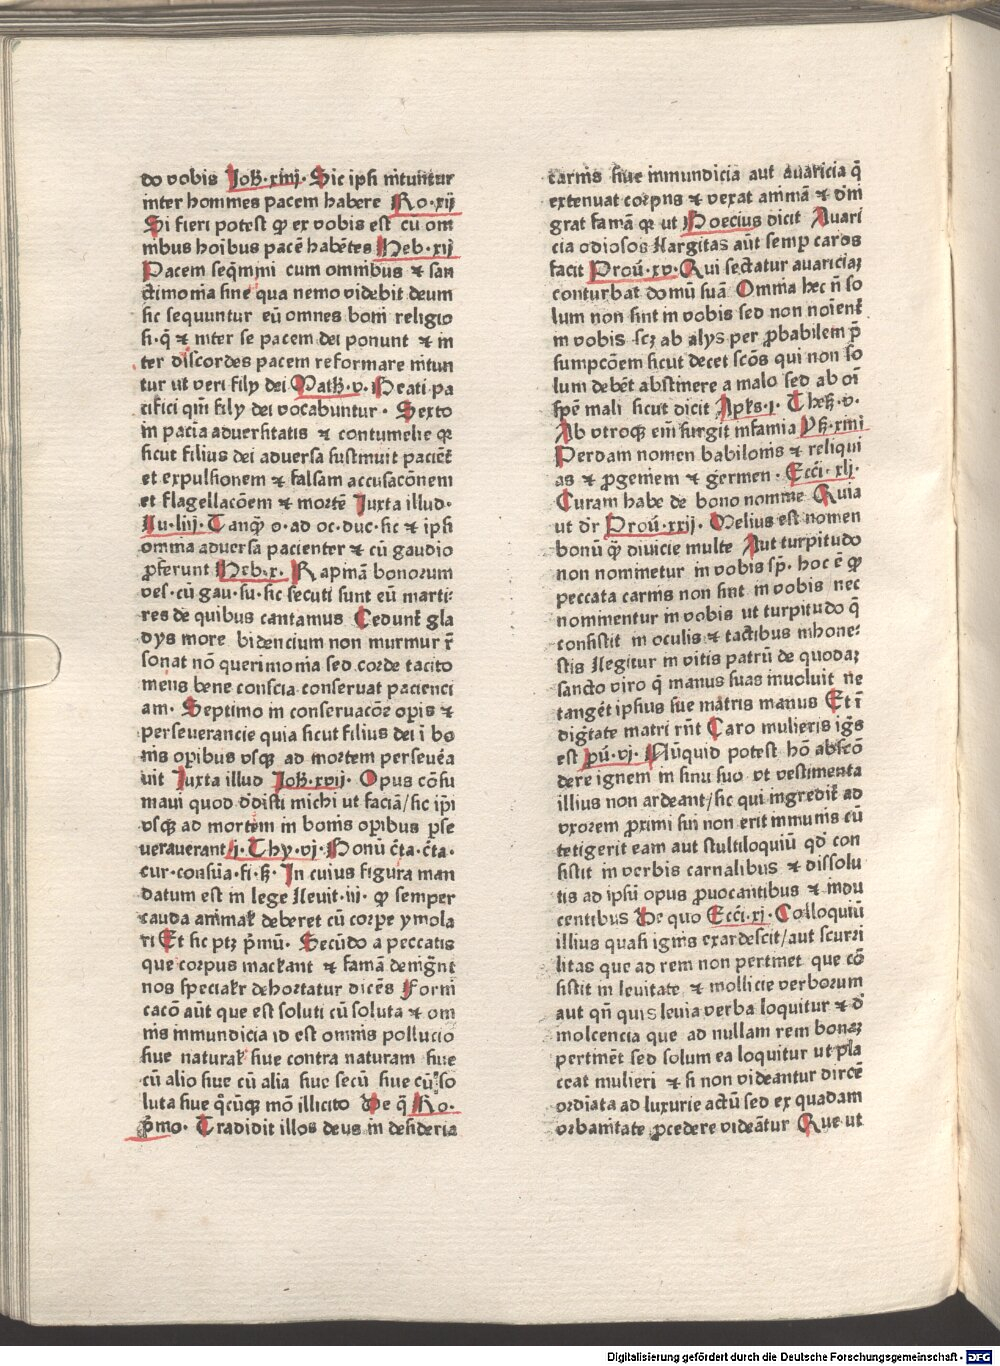 do vobis Joh̄·xiiij· Sic ipsi nituntur
inter homines pacem habere Ro·xij
Si fieri potest qɔ ex vobis est cū om
nibus hoībus pacē habētes Heb·xij
Pacem seq̄mini cum omnibus ⁊ san
ctimonia sine qua nemo videbit deum
sic sequuntur eū omnes boni religio
si·q̄ ⁊ inter se pacem dei ponunt ⁊ in
ter discordes pacem reformare nitun
tur ut veri filij dei Math̄·v· Beati pa
cifici qm̄ filij dei vocabuntur · Sexto
in pacia aduersitatis ⁊ contumelie qꝛ
sicut filius dei aduersa sustinuit paciēt̄
et expulsionem ⁊ falsam accusacōnem
et flagellacōem ⁊ mortē Juxta illud·
Lu·liij· Tanq̄ᷓ o·ad oc·duc·sic ⁊ ipsi
omnia aduersa pacienter ⁊ cū gaudio
ꝓferunt Heb·x· Rapinā bonorum
ves·cū gau·su·sic secuti sunt eū marti⸗
res de quibus cantamus Cedunt gla
dijs more bidencium non murmur r̄
sonat nō querimonia sed corde tacito
mens bene conscia conseruat pacienci
am· Septimo in conseruacōē opis ⁊
perseuerancie quia sicut filius dei ī bo
nis opībus vsqꝫ ad mortem perseuēa
uit Juxta illud Joh̄·xvij· Opus cōsu
maui quod dedisti michi ut faciā/sic ipi
vsqꝫ ad mortem in bonis opībus pse
uerauerant·j·Thy·vj· Bonū c̄ta·c̄ta·
cur·consūa·fi·h̄· In cuius figura man
datum est in lege Leuit·iij· qɔ semper
cauda animaɫ deberet cū corpe ymola
ri Et sic ptꝫ p̄mū· Secūdo a peccatis
que corpus mactant ⁊ famā demḡnt
nos speciaɫr dehortatur dicēs Forni
cacō aūt que est soluti cū soluta ⁊ om
nis inmundicia id est omnis pollucio
siue naturaɫ siue contra naturam siue
cū alio siue cū alia siue secū siue cū so
luta siue q̊cūqꝫ mō illicito De q̄ Ro·
p̄mo· Tradidit illos deus in desideria
carnis siue inmundicia aut auaricia q̄
extenuat corpus ⁊ vexat animā ⁊ dni
grat famā qꝛ ut Boecius dicit Auari
cia odiosos Largitas aūt semp caros
facit Prouī·xv· Qui sectatur auariciaꝫ
conturbat domū suā Omnia hec n̄ so
lum non sint in vobis sed non noīent̄
in vobis scꝫ ab alijs per ꝓbabilem p̄
sumpcōem sicut decet scōs qui non so
lum debēt abstinere a malo sed ab oī
spē mali sicut dicit Apłs·j· Theß·v·
Ab vtroqꝫ em̄ surgit infamia Ys̄·xiiij
Perdam nomen babilonis ⁊ reliqui
as ⁊ ꝓgeniem ⁊ germen · Ecc̄i·xlj·
Curam habe de bono nomine Quia
ut dr̄ Prouī·xxij· Melius est nomen
bonū q̄ᷓ diuicie multe Aut turpitudo
non nominetur in vobis sp̄· hoc ē qɔ
peccata carnis non sint in vobis nec
nominentur in vobis ut turpitudo q̄
consistit in oculis ⁊ tactibus inhone⸗
stis Legitur in vitis patrū de quodaꝫ
sancto viro q̄ manus suas inuoluit ne
tangēt ipsius sue matris manus Et ī
digītate matri rn̄t Caro mulieris igīs
est pū·vj· Nūquid potest hō abscō
dere ignem in sinu suo vt vestimenta
illius non ardeant/sic qui ingredit̄ ad
vxorem ꝓximi sui non erit inmunis cū
tetigerit eam aut stultiloquiū qd̄ con
sistit in verbis carnalibus ⁊ dissolu
tis ad ipsū opus ꝓuocantibus ⁊ indu
centibus De quo Ecc̄i·xj· Colloquiū
illius quasi ignis exardescit/aut scurri
litas que ad rem non pertinet que cō
sistit in leuitate ⁊ mollicie verborum
aut qn̄ quis leuia verba loquitur ⁊ d̄
molcencia que ad nullam rem bonaꝫ
pertinēt sed solum ea loquitur ut pla
ceat mulieri ⁊ si non videantur dircē
ordiata ad luxurie actū sed ex quadam
vrbanitate ꝓcedere videātur Que ut
Digitalisierung gefördert durch die Deutsche Forschungsgemeinschaft - DFG